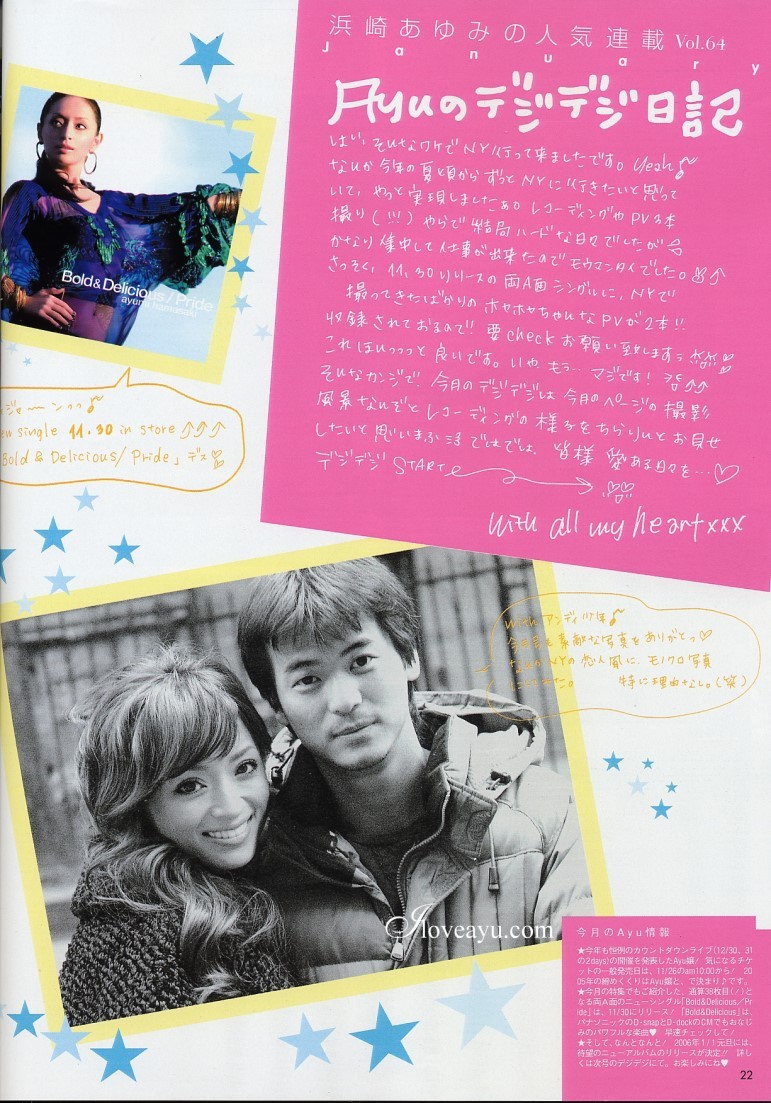 浜崎あゆみの人気連載 Vol.64
January
Ayuのデジデジ日記
はい、そんなワケでNY行って来ましたです。Yeah♪
なんか今年の夏頃からずっとNYに行きたいと思って
いて、やっと実現しましたぁ。レコーディングやPV3本
撮り(!!!)やらで結局ハードな日々でしたが
かなり集中して仕事が出来たのでモウマンタイでした。↑
さっそく、11.30リリースの両A面シングルに、NYで
撮ってきたばかりのホヤホヤちゃんなPVが2本!!
収録されておるので!! 要checkお願い致します
これはいっっっと良いです。いや、もぅ…マジです! ↑↑
そんなカンジで、今月のデジデジは今月のページの撮影
風景なんぞとレコーディングの様子をちらりんとお見せ
したいと思いまふ では、皆様 愛ある日々を…♡
デジデジSTART
with all my heart xxx
Bold&Delicious/Pride
ayumi hamasaki
new single 11.30 in store ↑↑↑
「Bold & Delicious/Pride」デス
with アンディ少年♪
今回も素敵な写真をありがとっ♡
なんかNYの恋人風に、モノクロ写真
特に理由なし。(笑)
Iloveayu.com
今月のAyu情報
★今年も恒例のカウントダウンライブ(12/30、31
の2days)の開催を発表したAyu嬢! 気になるチケ
ットの一般発売日は、11/26のam10:00から! 20
05年の締めくくりはAyu嬢と、で決まり♪です。
★今月の特集でもご紹介した、通算38枚目(!)と
なる両A面のニューシングル「Bold&Delicious/Pr
ide」は、11/30にリリース! 「Bold&Delicious」は、
パナソニックのD-snapとD-dockのCMでもおなじ
みのパワフルな楽曲♥ 早速チェックして!
★そして、なんとなんと! 2006年1/1元旦には、
待望のニューアルバムのリリースが決定!! 詳し
くは次号のデジデジにて。お楽しみにね♥
22